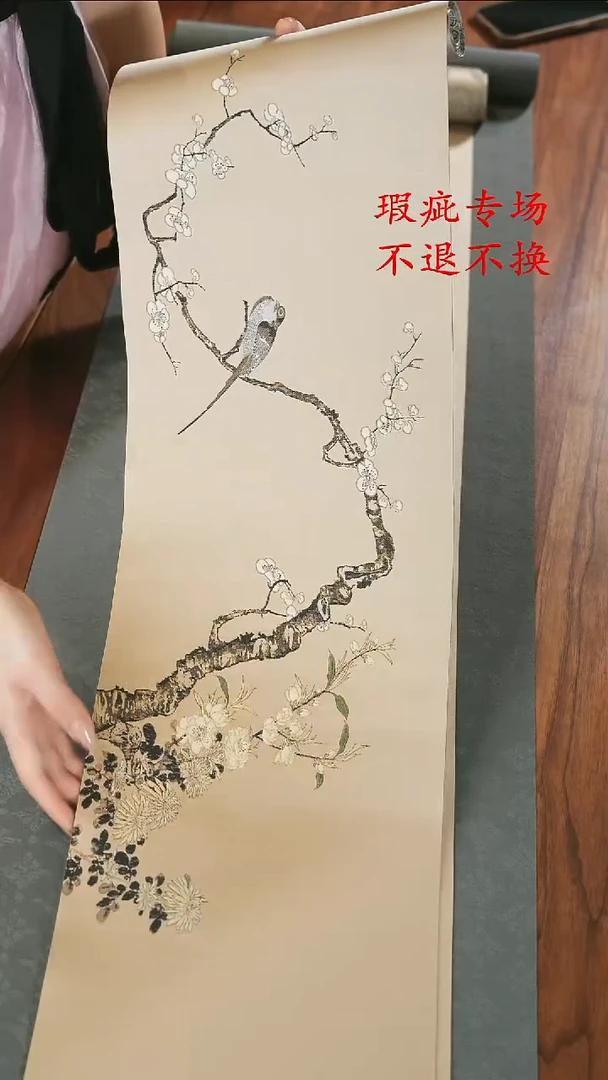 瑕疵专场
不退不换